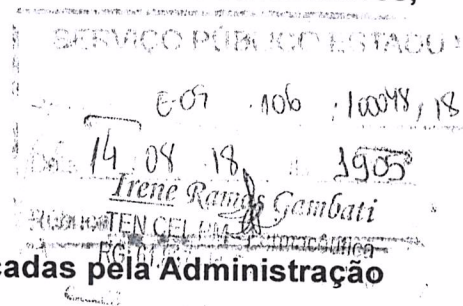 SERVIÇO PÚBLICO ESTADU
E-09 106 100048, 18
14 08 18 1905
Irene Ramos Gambati
TEN CEL PM Farmacêutica
RG
cadas pela Administração